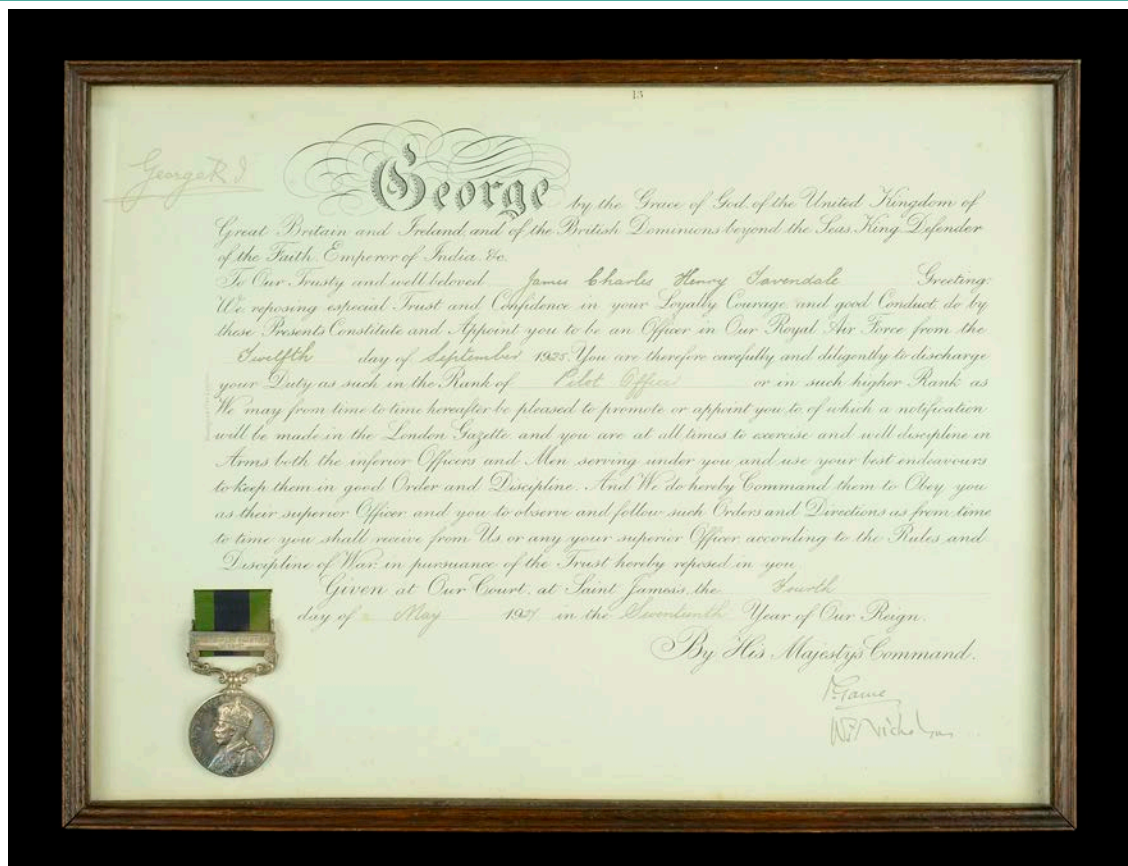 13
George R. I
George by the Grace of God, of the United Kingdom of
Great Britain and Ireland, and of the British Dominions beyond the Seas, King, Defender
of the Faith, Emperor of India, &c.
To Our Trusty and well beloved James Charles Henry Tavendale Greeting:
We, reposing especial Trust and Confidence in your Loyalty, Courage, and good Conduct, do by
these Presents Constitute and Appoint you to be an Officer in Our Royal Air Force from the
Twelfth day of September 1925. You are therefore carefully and diligently to discharge
your Duty as such in the Rank of Pilot Officer or in such higher Rank as
We may from time to time hereafter be pleased to promote or appoint you to, of which a notification
will be made in the London Gazette, and you are at all times to exercise and well discipline in
Arms both the inferior Officers and Men serving under you and use your best endeavours
to keep them in good Order and Discipline. And We do hereby Command them to Obey you
as their superior Officer and you to observe and follow such Orders and Directions as from time
to time you shall receive from Us, or any your superior Officer, according to the Rules and
Discipline of War, in pursuance of the Trust hereby reposed in you.
Given at Our Court, at Saint James's, the Fourth
day of May 1927 in the Seventeenth Year of Our Reign.
By His Majesty's Command.